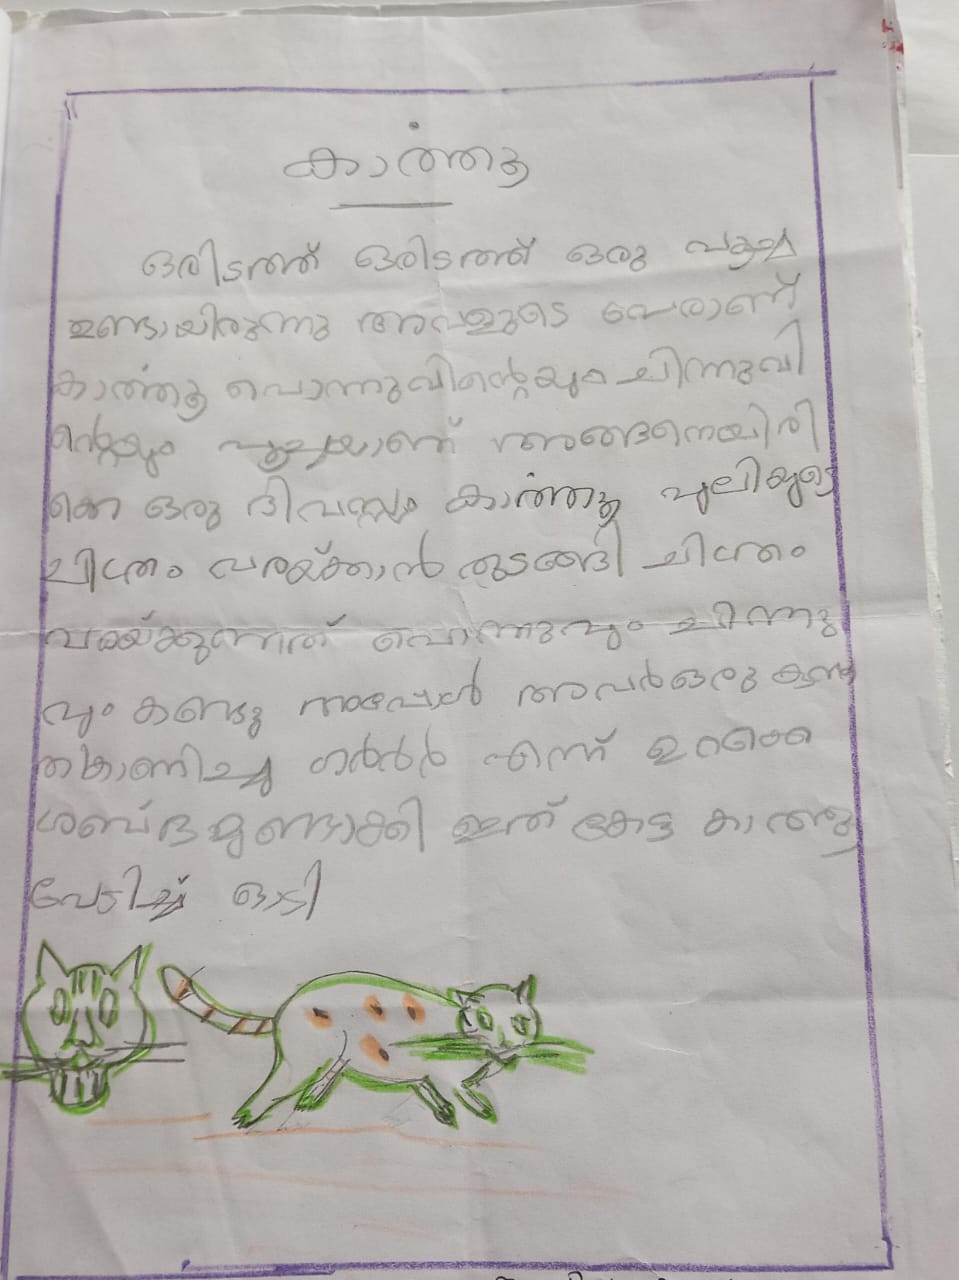 കാർത്തു
ഒരിടത്ത് ഒരിടത്ത് ഒരു പൂച്ച
ഉണ്ടായിരുന്നു അവളുടെ പേരാണ്
കാർത്തു പൊന്നുവിന്റെയും ചിന്നുവി
ന്റെയും പൂച്ചയാണ് അങ്ങനെയിരി
ക്കെ ഒരു ദിവസം കാർത്തു പുലിയുടെ
ചിത്രം വരയ്ക്കാൻ തുടങ്ങി ചിത്രം
വരയ്ക്കുന്നത് പൊന്നുവും ചിന്നു
വും കണ്ടു അപ്പോൾ അവർ ഒരു
ഗർർർ എന്ന് ഉറക്കെ
ശബ്ദമുണ്ടാക്കി ഇത് കേട്ട കാർത്തു
പേടിച്ച് ഓടി